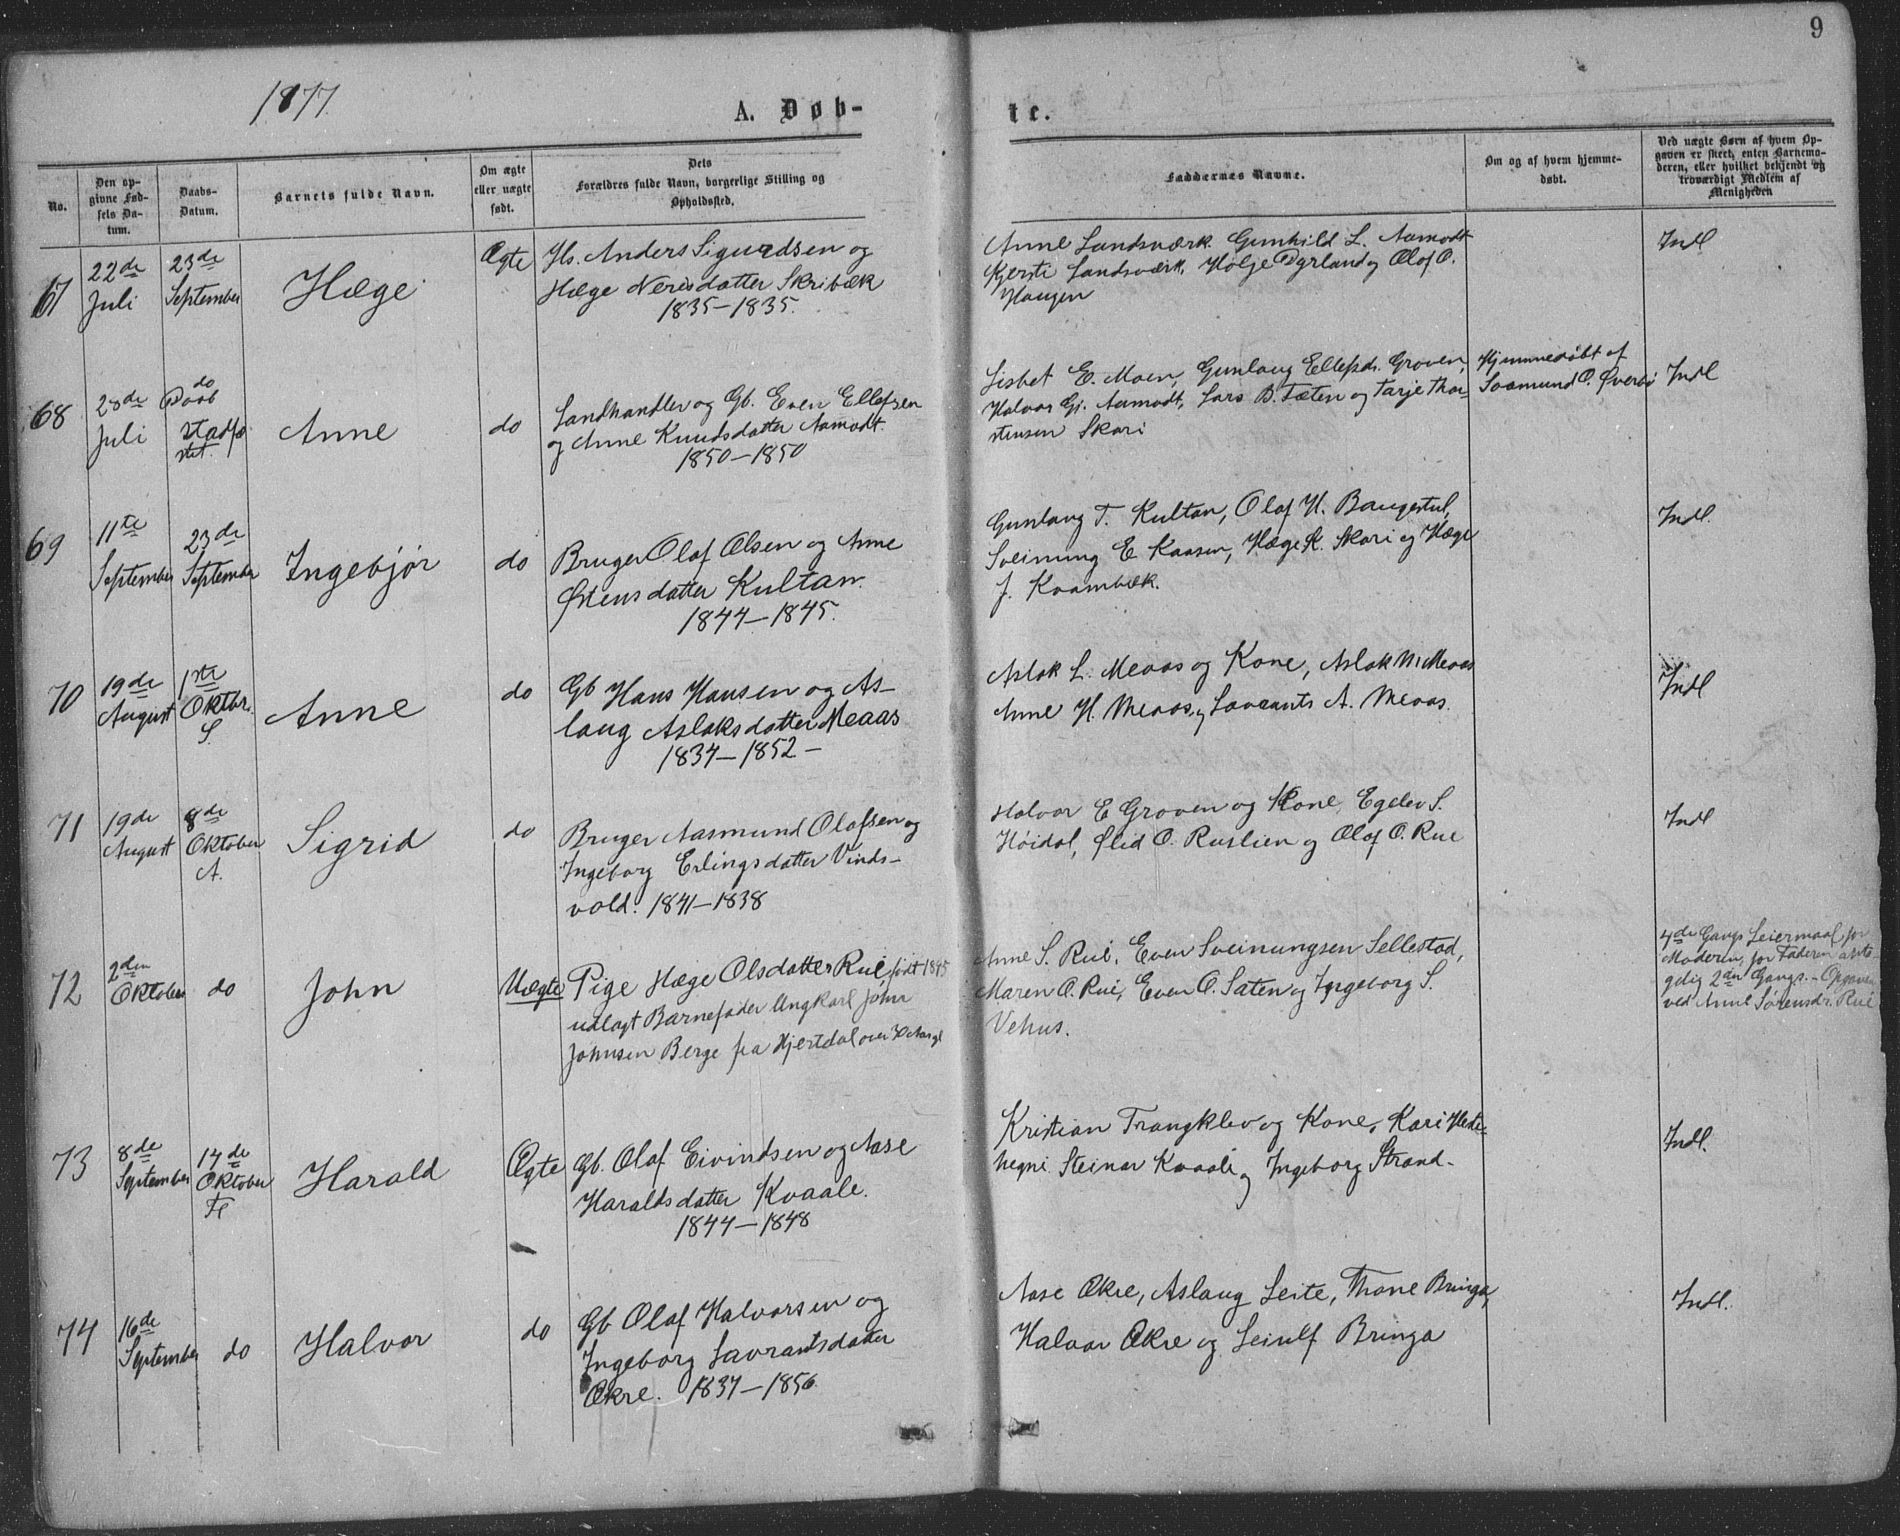 9
1877.
A. Døb-
te.
No.
Den op-
givne Fød-
sels Da-
tum.
Daabs-
Datum.
Barnets fulde Navn.
Om ægte
eller uægte
født.
Dets
Forældres fulde Navn, borgerlige Stilling og
Opholdssted.
Faddernes Navne.
Om og af hvem hjemme-
døbt.
Ved uægte Børn af hvem Op-
gaven er skeet, enten Barnemo-
deren, eller hvilket bekjendt og
troværdigt Medlem af
Menigheden
67
22de
Juli
23de
September
Hæge
Ægte
Hs. Anders Sigurdsen og
Hæge Nerisdatter Skribæk
1835-1835.
Anne Landsværk Gunhild L. Aamodt
Kjersti Landsværk, Holje Dyrland og Olof O.
Haugen
Indl
68
28de
Juli
do
Daab
stadfæ-
stet.
Anne
do
Landhandler og Gb. Even Ellefsen
og Anne Knudsdatter Aamodt.
1850-1850
Lisbet E. Moen, Gunlaug Ellefsdr. Groven,
Halvor Gj. Aamodt, Lars B. Tæten og Tarje Thor-
stensen Skori
Hjemmedøbt af
Aasmund O. Øverbø
Indl
69
11te
September
23de
September
Ingebjør
do
Bruger Olaf Olsen og Anne
Østensdatter Kultan.
1844-1845.
Gunlaug T. Kultan, Olaf H. Baugestul,
Sveinung E Kaasen, Hæge K. Skori og Hæge
J. Kvambæk.
Indl.
70
19de
August
1ste
Oktbr.
S.
Anne
do
Gb Hans Hansen og As-
laug Aslaksdatter Meaas
1837-1852-
Aslak L. Meaas og Kone, Aslak M. Meaas
Anne H. Meaas og Lavrants A. Meaas.
Indl
71
19de
August
8de
Oktober
A.
Sigrid
do
Bruger Aasmund Olafsen og
Ingeborg Erlingsdatter Vinds-
vold. 1841-1838
Halvor E Groven og Kone, Egelev S.
Høidal, Ølid O. Ruslien og Olof O. Rue
Indl
72
2den
Oktober
do
John
Uægte
Pige Hæge Olsdatter Rui født 1845
udlagt Barnefader Ungkarl John
Johnsen Berge fra Hjertdal over 30 Aar gl
Anne S. Rui, Even Sveinungsen Sellestad,
Maren O. Rui, Even O. Saten og Ingeborg S.
Vehus.
4de Gangs Leiermaal for
Moderen, for Faderen anta-
gelig 2den Gangs. - Opgaven
ved Anne Sørensdr. Rui
73
8de
September
14de
Oktober
Fl
Harald
Ægte
Gb. Olaf Eivindsen og Aase
Haraldsdatter Kvaale.
1844-1848
Kristian Trangklev og Kone, Kari Hede-
hegni Steinar Kvaale og Ingeborg Strand.
Indl.
74
16de
September
do
Halvor
do
Gb Olaf Halvorsen og
Ingeborg Lavrantsdatter
Økre. 1837-1856.
Aase Økre, Aslaug Leite, Thone Bringa,
Halvor Økre og Leiulf Bringa
Indl.